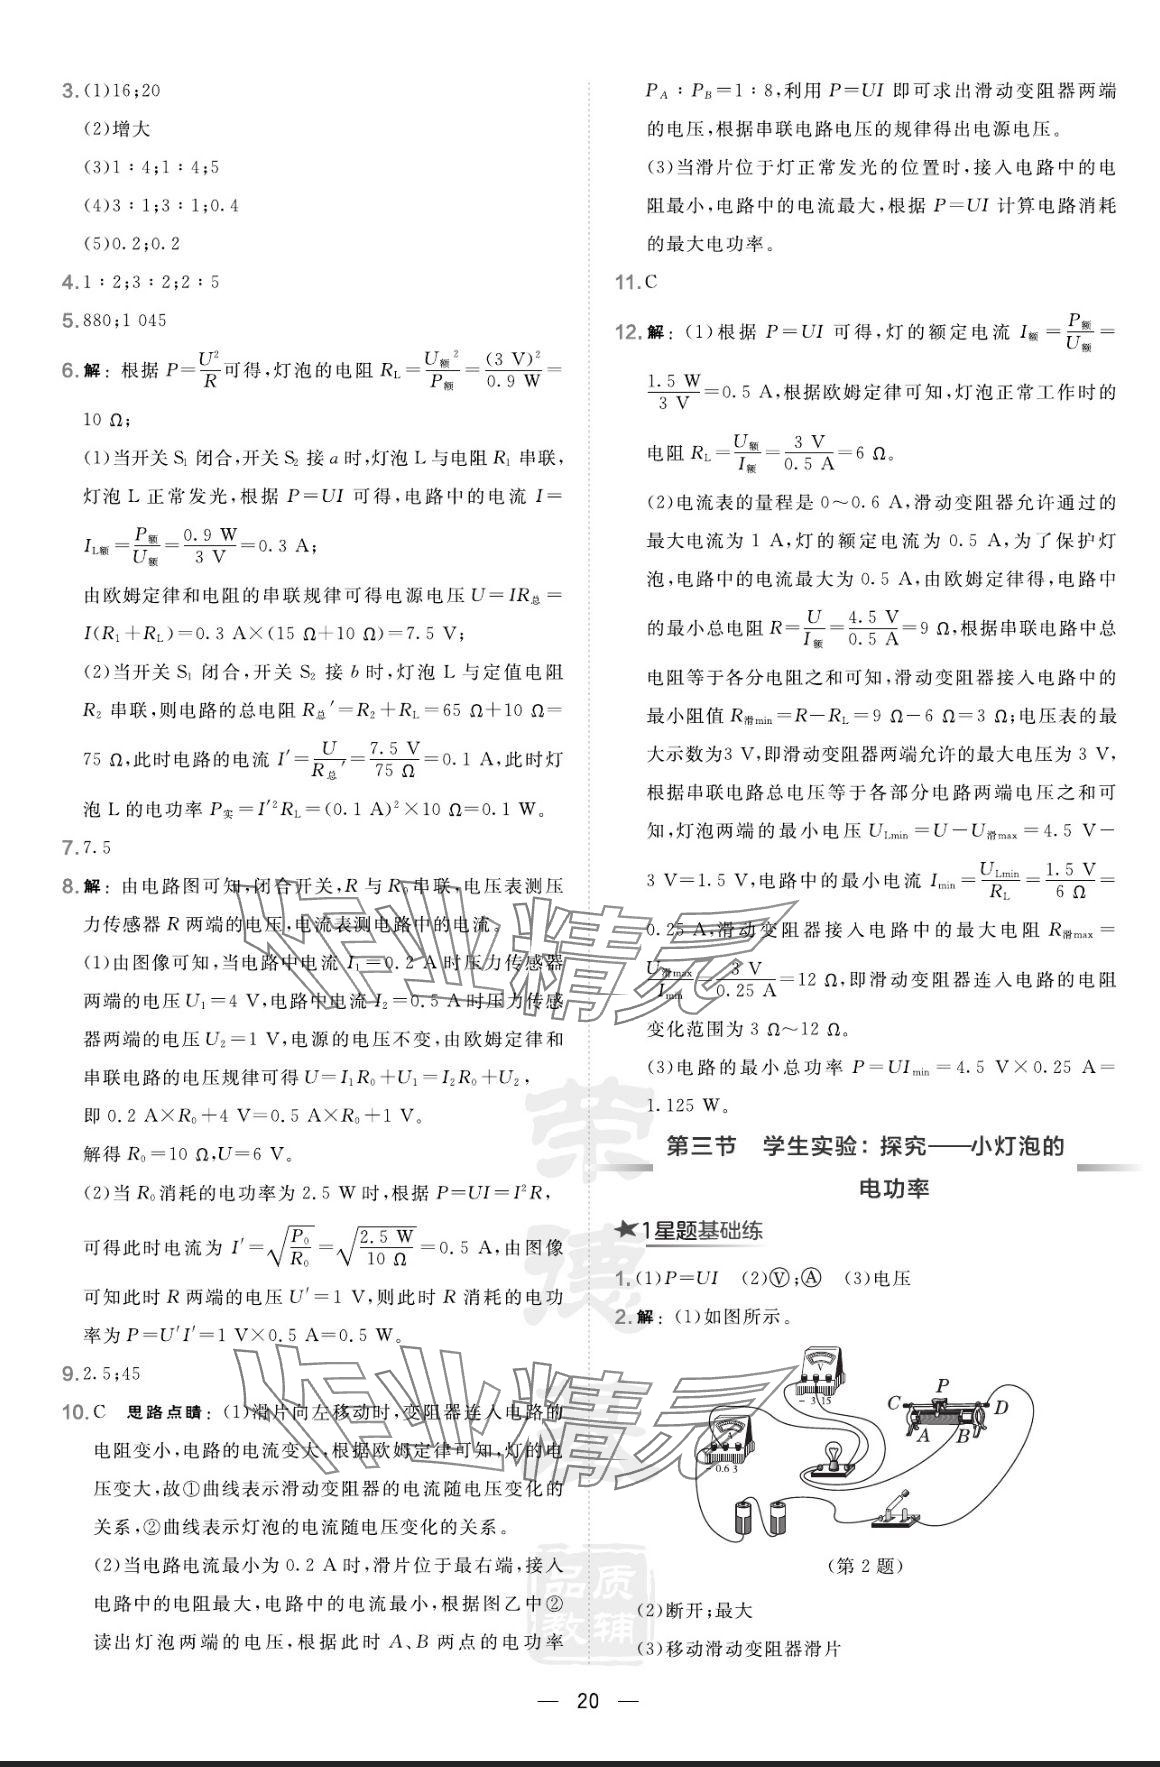 3.(1)16;20
(2)增大
(3)1∶4;1∶4;5
(4)3∶1;3∶1;0.4
(5)0.2;0.2
4.1∶2;3∶2;2∶5
5.880;1 045
6.解:根据 P=U²/R可得,灯泡的电阻 R_L=U额²/P额=(3 V)²/0.9 W=
10 Ω;
(1)当开关 S₁ 闭合,开关 S₂ 接 a 时,灯泡 L 与电阻 R₁ 串联,
灯泡 L 正常发光,根据 P=UI 可得,电路中的电流 I=
I_L额=P额/U额=0.9 W/3 V=0.3 A;
由欧姆定律和电阻的串联规律可得电源电压 U=IR总=
I(R₁+R_L)=0.3 A×(15 Ω+10 Ω)=7.5 V;
(2)当开关 S₁ 闭合,开关 S₂ 接 b 时,灯泡 L 与定值电阻
R₂ 串联,则电路的总电阻 R总′=R₂+R_L=65 Ω+10 Ω=
75 Ω,此时电路的电流 I′=U/R总′=7.5 V/75 Ω=0.1 A,此时灯
泡 L 的电功率 P实=I′²R_L=(0.1 A)²×10 Ω=0.1 W。
7.7.5
8.解:由电路图可知,闭合开关,R 与 R₀ 串联,电压表测压
力传感器 R 两端的电压,电流表测电路中的电流。
(1)由图像可知,当电路中电流 I₁=0.2 A 时压力传感器
两端的电压 U₁=4 V,电路中电流 I₂=0.5 A 时压力传感
器两端的电压 U₂=1 V,电源的电压不变,由欧姆定律和
串联电路的电压规律可得 U=I₁R₀+U₁=I₂R₀+U₂,
即 0.2 A×R₀+4 V=0.5 A×R₀+1 V。
解得 R₀=10 Ω,U=6 V。
(2)当 R₀消耗的电功率为 2.5 W 时,根据 P=UI=I²R,
可得此时电流为 I′=√(P₀/R₀)=√(2.5 W/10 Ω)=0.5 A,由图像
可知此时 R 两端的电压 U′=1 V,则此时 R 消耗的电功
率为 P=U′I′=1 V×0.5 A=0.5 W。
9.2.5;45
10.C 思路点睛:(1)滑片向左移动时,变阻器连入电路的
电阻变小,电路的电流变大,根据欧姆定律可知,灯的电
压变大,故①曲线表示滑动变阻器的电流随电压变化的
关系,②曲线表示灯泡的电流随电压变化的关系。
(2)当电路电流最小为 0.2 A 时,滑片位于最右端,接入
电路中的电阻最大,电路中的电流最小,根据图乙中②
读出灯泡两端的电压,根据此时 A、B 两点的电功率
P_A∶P_B=1∶8,利用 P=UI 即可求出滑动变阻器两端
的电压,根据串联电路电压的规律得出电源电压。
(3)当滑片位于灯正常发光的位置时,接入电路中的电
阻最小,电路中的电流最大,根据 P=UI 计算电路消耗
的最大电功率。
11.C
12.解:(1)根据 P=UI 可得,灯的额定电流 I额=P额/U额=
1.5 W/3 V=0.5 A,根据欧姆定律可知,灯泡正常工作时的
电阻 R_L=U额/I额=3 V/0.5 A=6 Ω。
(2)电流表的量程是 0~0.6 A,滑动变阻器允许通过的
最大电流为 1 A,灯的额定电流为 0.5 A,为了保护灯
泡,电路中的电流最大为 0.5 A,由欧姆定律得,电路中
的最小总电阻 R=U/I额=4.5 V/0.5 A=9 Ω,根据串联电路中总
电阻等于各分电阻之和可知,滑动变阻器接入电路中的
最小阻值 R滑min=R-R_L=9 Ω-6 Ω=3 Ω;电压表的最
大示数为3 V,即滑动变阻器两端允许的最大电压为 3 V,
根据串联电路总电压等于各部分电路两端电压之和可
知,灯泡两端的最小电压 U_Lmin=U-U滑max=4.5 V-
3 V=1.5 V,电路中的最小电流 I_min=U_Lmin/R_L=1.5 V/6 Ω=
0.25 A,滑动变阻器接入电路中的最大电阻 R滑max=
U滑max/I_min=3 V/0.25 A=12 Ω,即滑动变阻器连入电路的电阻
变化范围为 3 Ω~12 Ω。
(3)电路的最小总功率 P=UI_min=4.5 V×0.25 A=
1.125 W。
第三节 学生实验:探究——小灯泡的
电功率
★1星题基础练
1.(1)P=UI (2)Ⓥ;Ⓐ (3)电压
2.解:(1)如图所示。
V
- 3 15
A
- 0.6 3
C P D
A B
(第 2 题)
(2)断开;最大
(3)移动滑动变阻器滑片
— 20 —
作业精灵
作业精灵
荣德
品质
教辅